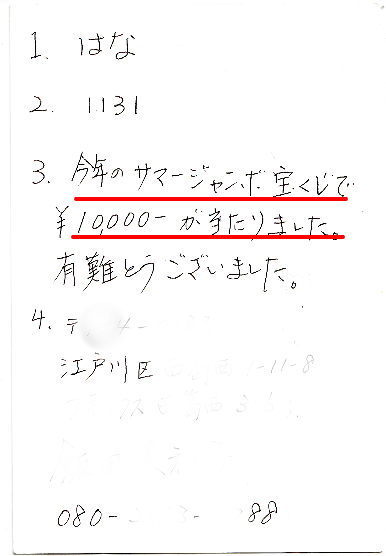 1. はな
2. 1131
3. 今年のサマージャンボ宝くじで
¥10,000-が当たりました。
有難とうございました。
4. 〒 4-
江戸川区 1-11-8
080- - 88